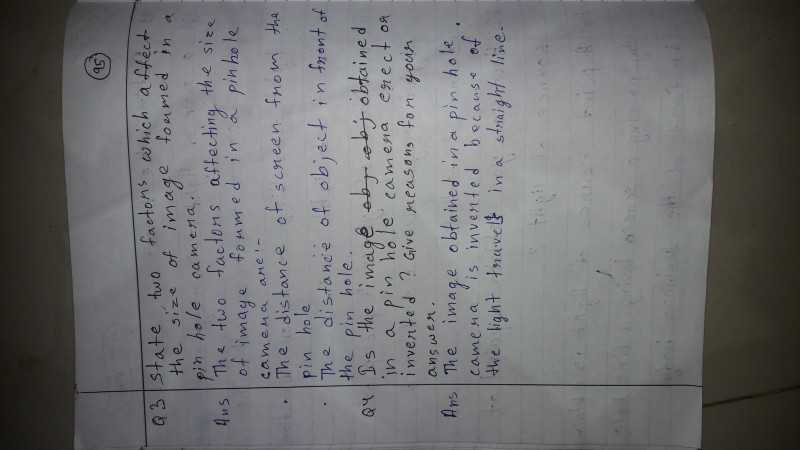 95
Q3 State two factors which affect
the size of image formed in a
pin hole camera.
Ans The two factors affecting the size
of image formed in a pinhole
camera are:-
. The distance of screen from the
pin hole
. The distance of object in front of
the pin hole.
Q4 Is the image obj obj obtained
in a pin hole camera erect or
inverted? Give reasons for your
answer.
Ans The image obtained in a pin hole
camera is inverted because of
the light travels in a straight line.